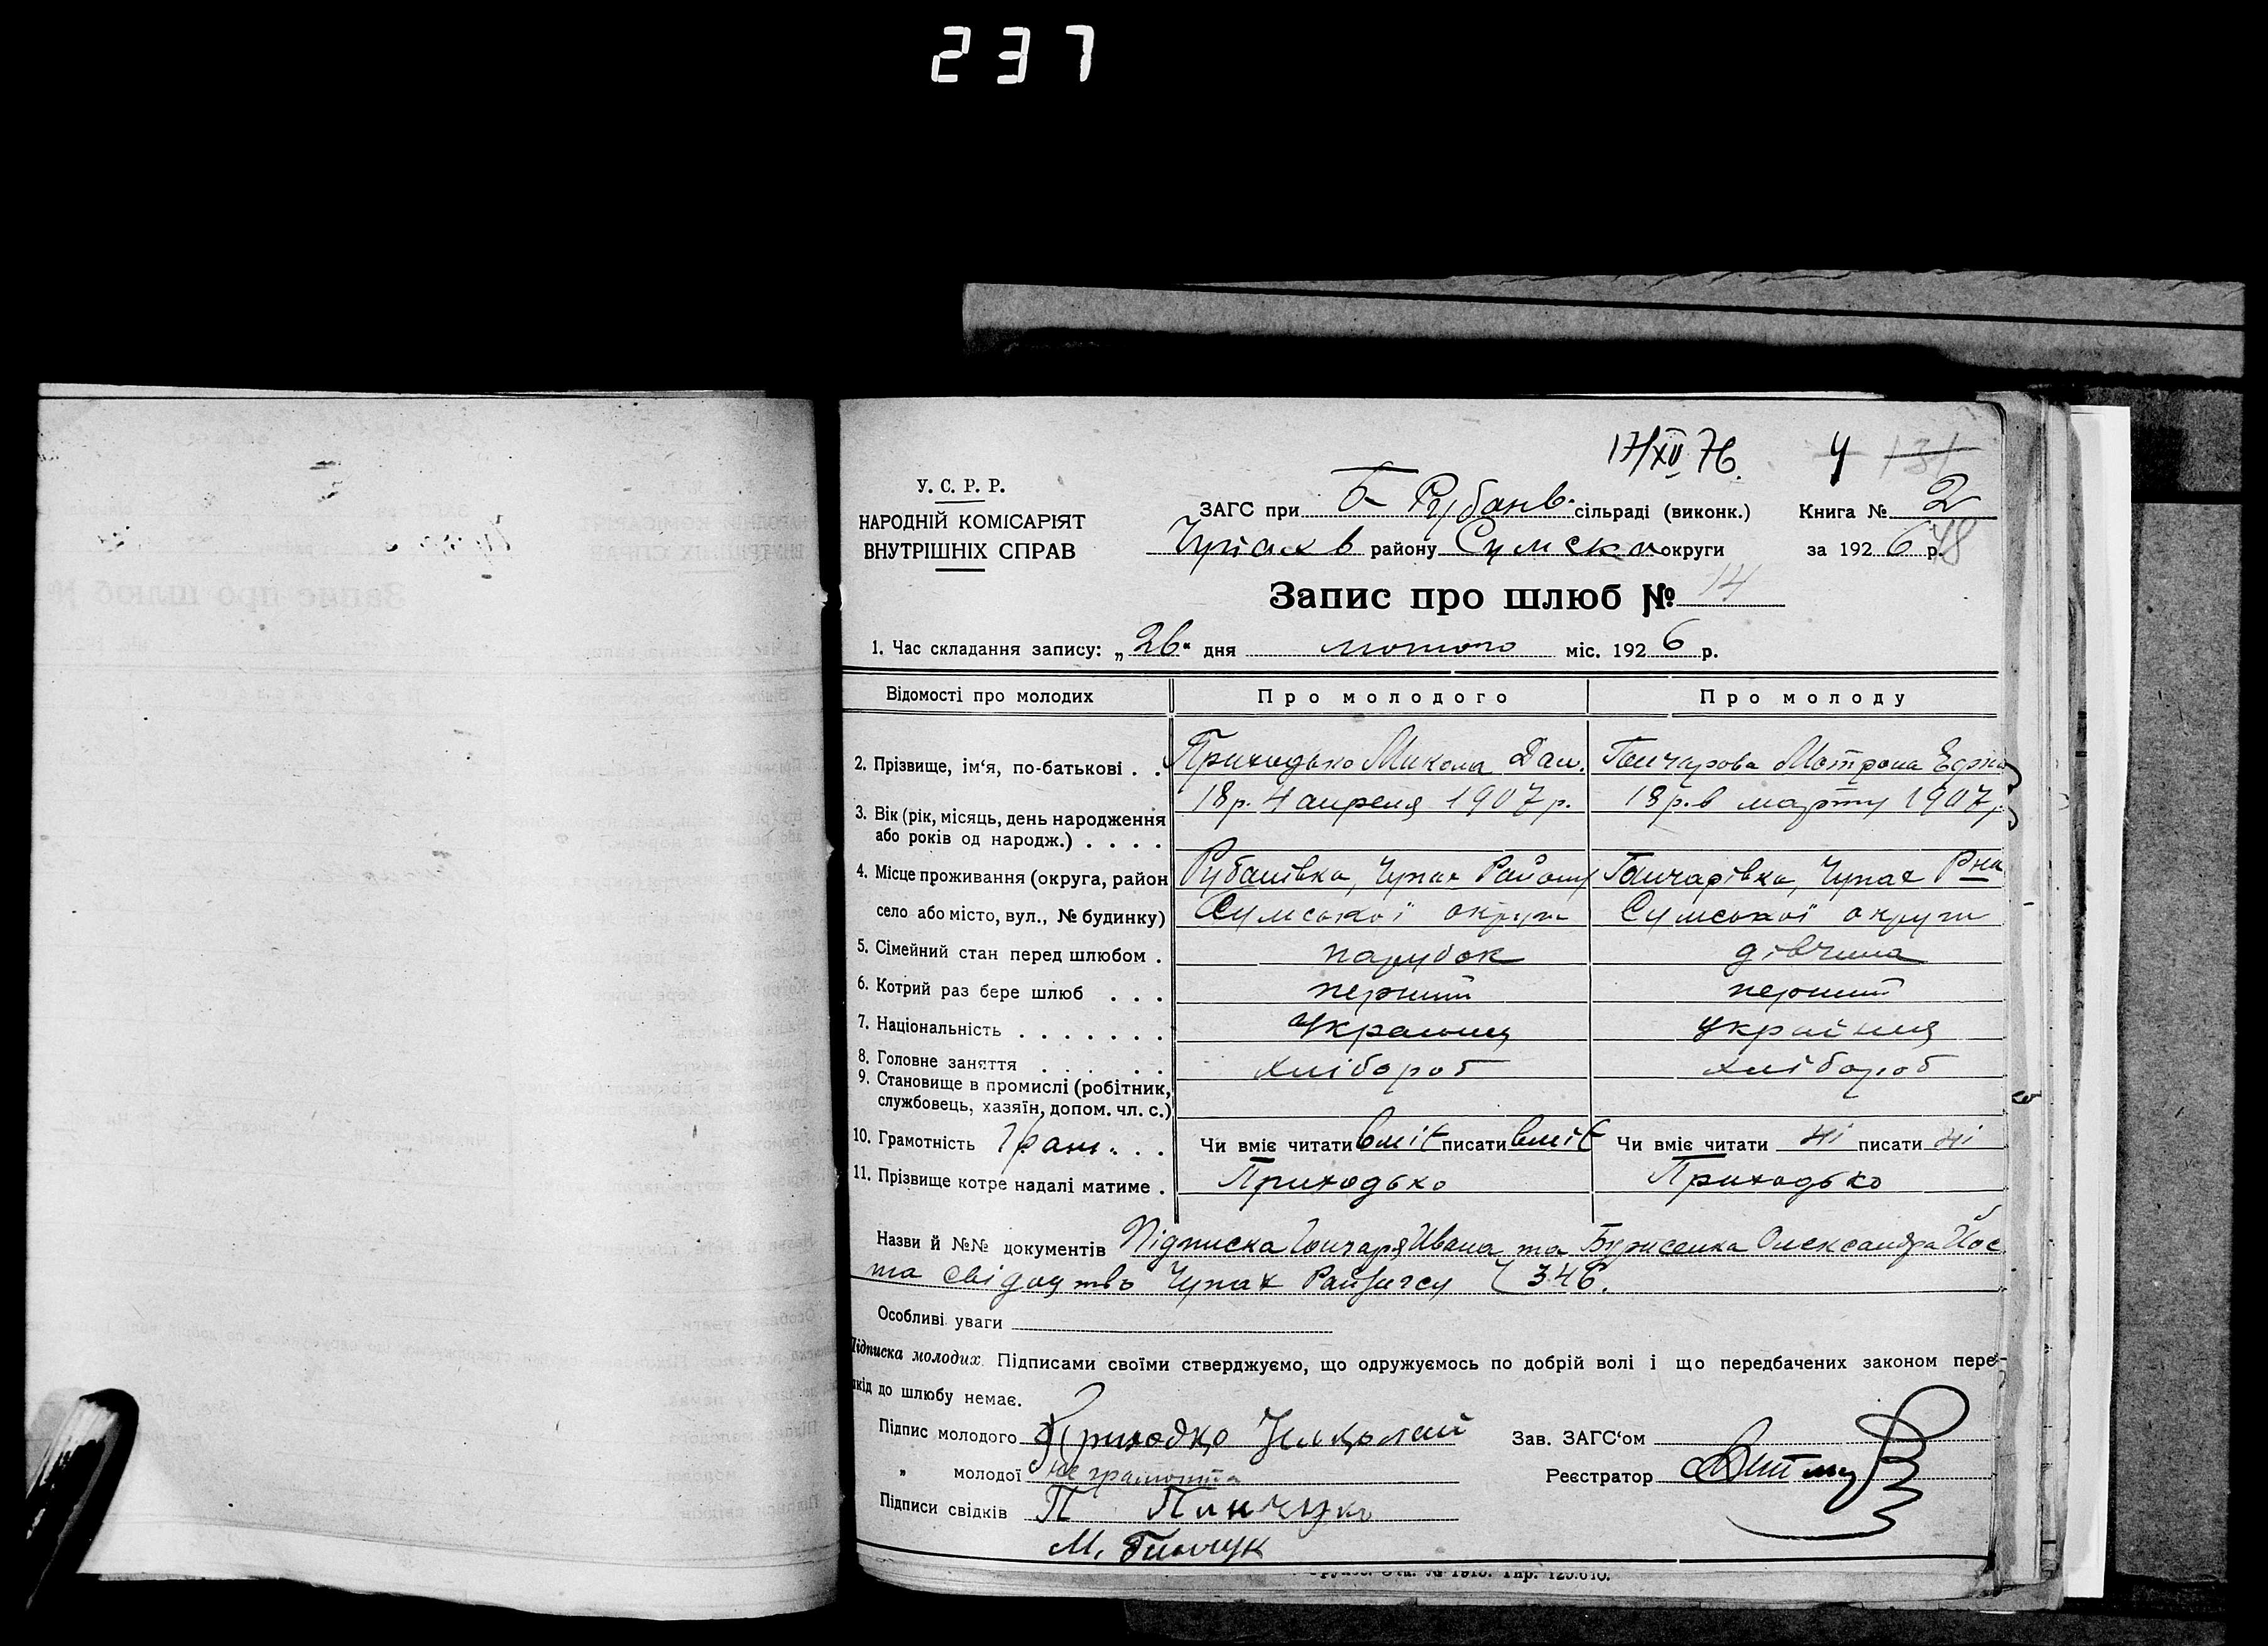 237
17/XII 76. 4 131
У. С. Р. Р.
НАРОДНІЙ КОМІСАРІЯТ
ВНУТРІШНІХ СПРАВ
ЗАГС при Б- Рубанів. сільраді (виконк.) Книга № 2
Чупахів району Сумськ округи за 1926 р. 48
Запис про шлюб № 14
1. Час складання запису: „26“ дня лютого міс. 1926 р.
Відомості про молодих Про молодого Про молоду
2. Прізвище, ім‘я, по-батькові . . Приходько Микола Дан. Гончарова Мотрона
3. Вік (рік, місяць, день народження або років од народж.) . . . . 18 р. 4 апреля 1907 р. 18 р. в марту 1907 р.
4. Місце проживання (округа, район Рубанівка, Чупах Району Гончарівка, Чупах Р-на
село або місто, вул., № будинку) Сумської округи Сумської округи
5. Сімейний стан перед шлюбом . парубок дівчина
6. Котрий раз бере шлюб . . . перший перший
7. Національність . . . . . . . Українец Україн
8. Головне заняття . . . . . хлібороб хлібороб
9. Становище в промислі (робітник,
службовець, хазяїн, допом. чл. с.)
10. Грамотність Грам. . . . Чи вміє читати вміє писати вміє Чи вміє читати ні писати ні
11. Прізвище котре надалі матиме . Приходько Приходько
Назви й №№ документів Підписка Гончаря Ивана та Борисенка Олександра
та свідоцтво Чупах 346.
Особливі уваги
Підписка молодих. Підписами своїми стверджуємо, що одружуємось по добрій волі і що передбачених законом пере-
шкід до шлюбу немає.
Підпис молодого Приходко Николай Зав. ЗАГС‘ом
„ молодої не грамотна Реєстратор
Підписи свідків П
М.